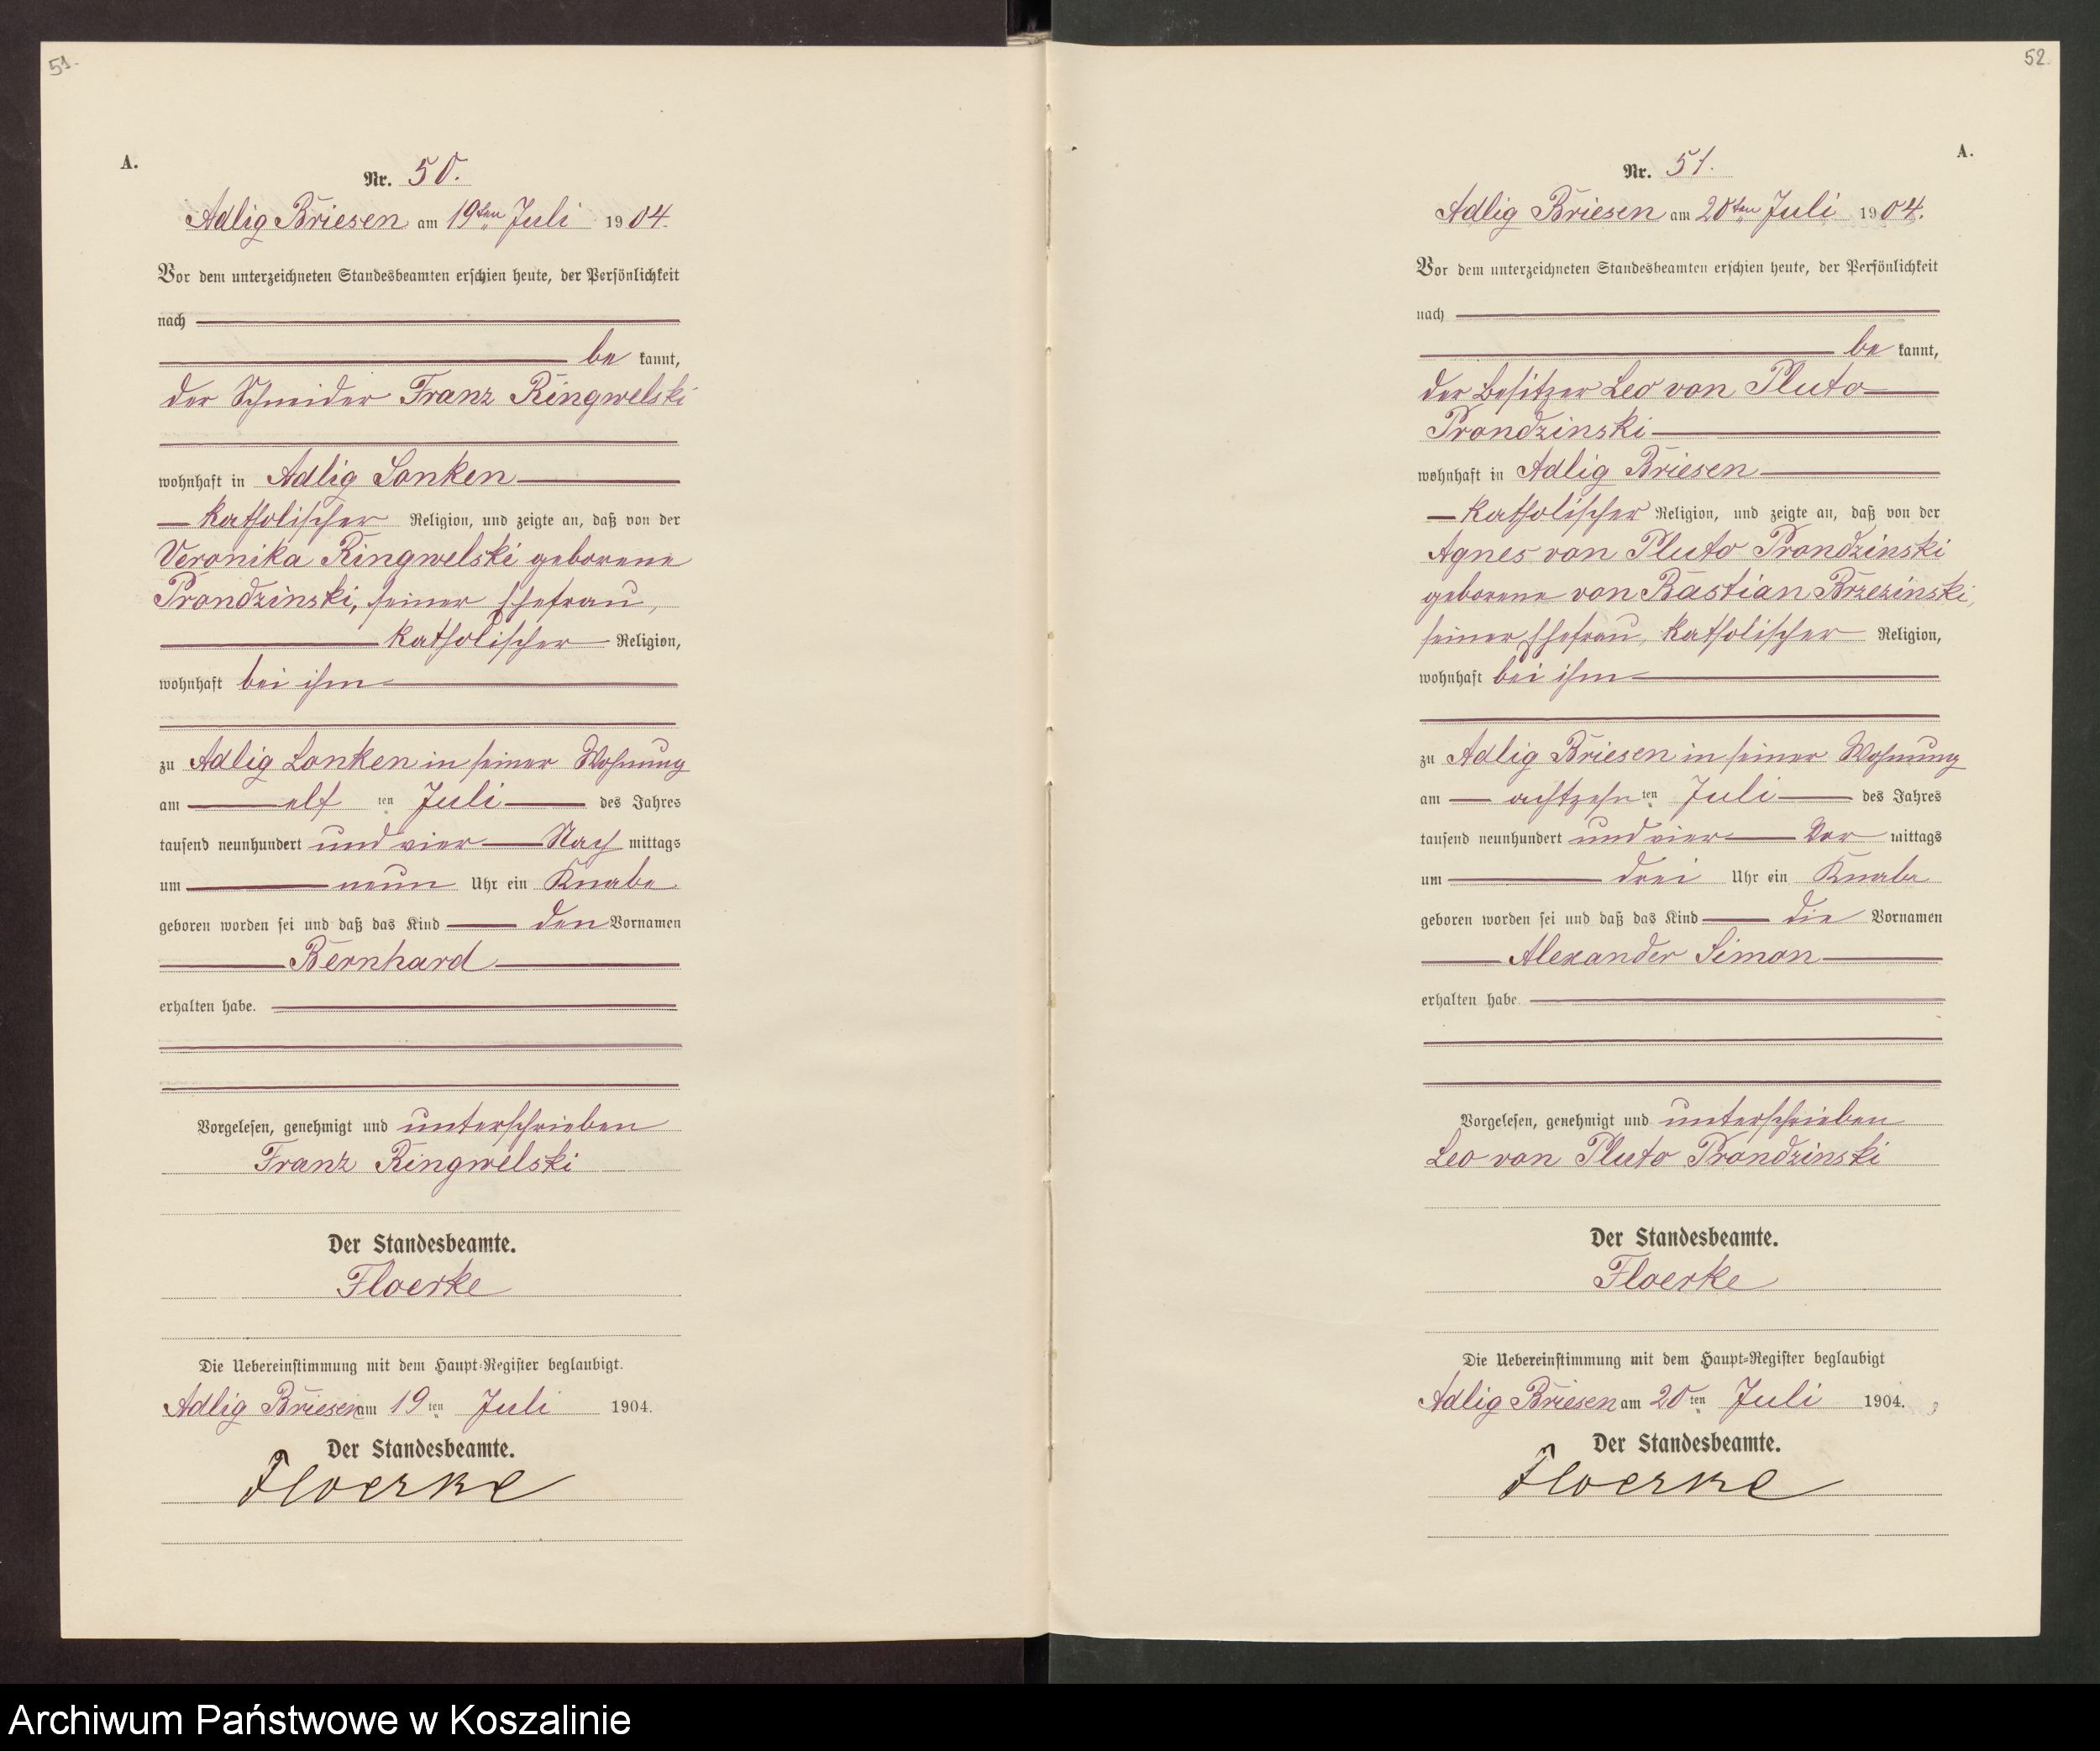 51.
A.
Nr. 50.
Adlig Briesen am 19ten Juli 1904.
Vor dem unterzeichneten Standesbeamten erschien heute, der Persönlichkeit
nach
be kannt,
der Schneider Franz Ringwelski
wohnhaft in Adlig Lonken
katholischer Religion, und zeigte an, daß von der
Veronika Ringwelski geborene
Prondzinski, seiner Ehefrau,
katholischer Religion,
wohnhaft bei ihm
zu Adlig Lonken in seiner Wohnung
am elf ten Juli des Jahres
tausend neunhundert und vier Nach mittags
um neun Uhr ein Knabe
geboren worden sei und daß das Kind den Vornamen
Bernhard
erhalten habe.
Vorgelesen, genehmigt und unterschrieben
Franz Ringwelski
Der Standesbeamte.
Floerke
Die Uebereinstimmung mit dem Haupt-Register beglaubigt.
Adlig Briesen am 19 ten Juli 1904.
Der Standesbeamte.
Floerke
52.
A.
Nr. 51.
Adlig Briesen am 20ten Juli 1904.
Vor dem unterzeichneten Standesbeamten erschien heute, der Persönlichkeit
nach
be kannt,
der Besitzer Leo von Pluto
Prondzinski
wohnhaft in Adlig Briesen
katholischer Religion, und zeigte an, daß von der
Agnes von Pluto Prondzinski
geborene von Bastian Brzezinski,
seiner Ehefrau, katholischer Religion,
wohnhaft bei ihm
zu Adlig Briesen in seiner Wohnung
am achtzehn ten Juli des Jahres
tausend neunhundert und vier Vor mittags
um drei Uhr ein Knabe
geboren worden sei und daß das Kind die Vornamen
Alexander Simon
erhalten habe.
Vorgelesen, genehmigt und unterschrieben
Leo von Pluto Prondzinski
Der Standesbeamte.
Floerke
Die Uebereinstimmung mit dem Haupt-Register beglaubigt
Adlig Briesen am 20 ten Juli 1904.
Der Standesbeamte.
Floerke
Archiwum Państwowe w Koszalinie